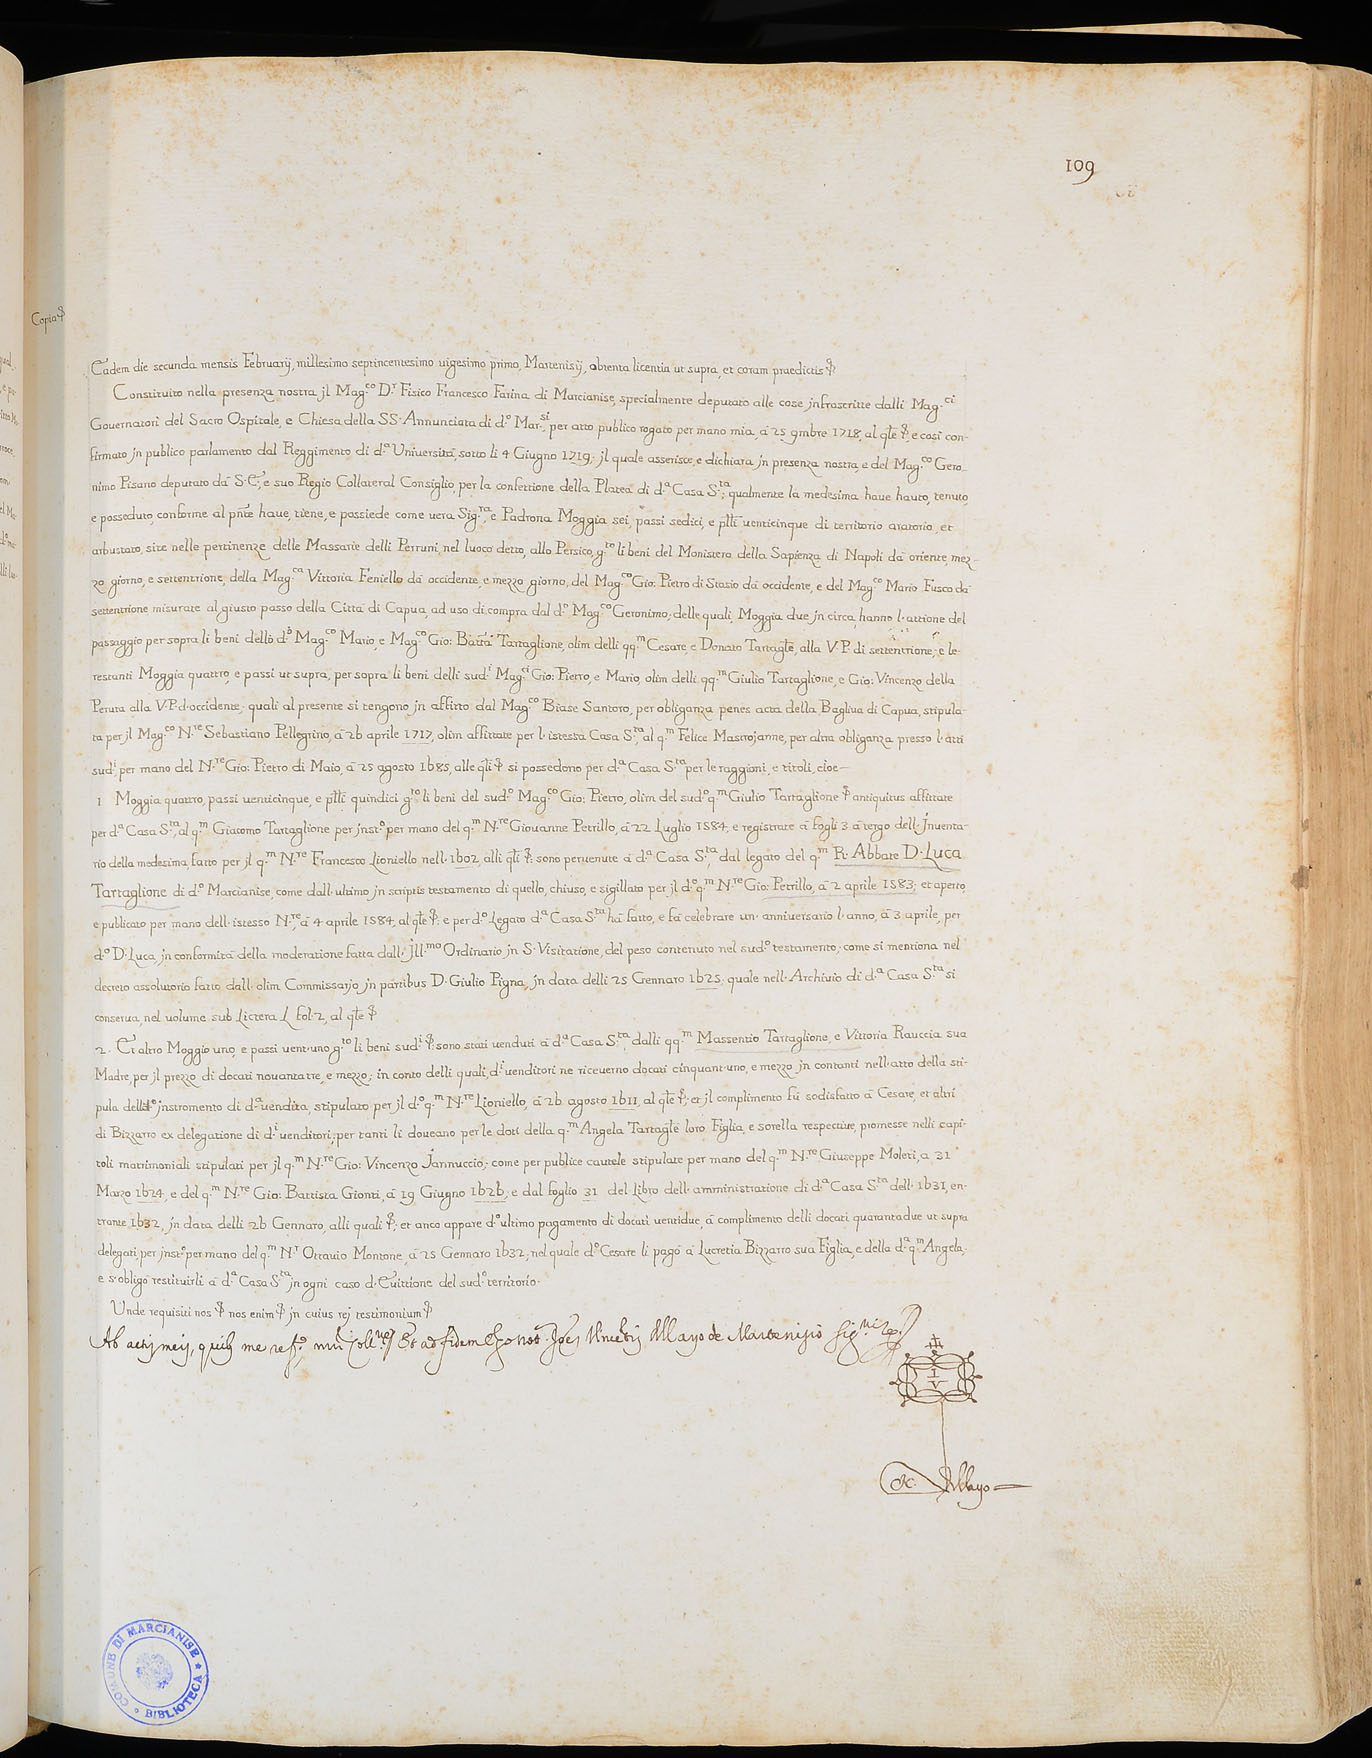 109
Copia
Eadem die secunda mensis Februarij, millesimo septincentesimo uigesimo primo, Martenisij, obtenta licentia ut supra, et coram praedictis
Constituito nella presenza nostra jl Mag.co D.r Fisico Francesco Farina di Marcianise, specialmente deputato alle cose jnfrascritte dalli Mag.ci
Gouernatori del Sacro Ospitale, e Chiesa della SS. Annunciata di d.o Mar.si, per atto publico rogato per mano mia, à 25 9mbre 1718, al qle, e così con-
firmato jn publico parlamento dal Reggimento di d.a Uniuersità, sotto li 4 Giugno 1719; jl quale asserisce, e dichiara jn presenza nostra, e del Mag.co Gero-
nimo Pisano deputato da S. E., e suo Regio Collateral Consiglio, per la confettione della Platea di d.a Casa S.ta; qualmente la medesima haue hauto, tenuto,
e posseduto, conforme al pnte haue, tiene, e possiede come uera Sig.ra, e Padrona Moggia sei, passi sedici, e plli uenticinque di territorio aratorio, et
arbustato, site nelle pertinenze delle Massarie delli Perruni, nel luoco detto, allo Persico, g.to li beni del Monistero della Sapienza di Napoli da oriente, mez-
zo giorno, e settentrione, della Mag.ca Vittoria Feniello da occidente, e mezzo giorno, del Mag.co Gio: Pietro di Stasio da occidente, e del Mag.co Mario Fusco da
settentrione misurate al giusto passo della Città di Capua, ad uso di compra dal d.o Mag.co Geronimo; delle quali Moggia due jn circa, hanno l'attione del
passaggio per sopra li beni dello d.o Mag.co Mario, e Mag.co Gio: Batta Tartaglione, olim delli qq.m Cesare, e Donato Tartagle, alla V.P. di settentrione; e le
restanti Moggia quattro, e passi ut supra, per sopra li beni delli sud.i Mag.ci Gio: Pietro, e Mario, olim delli qq.m Giulio Tartaglione, e Gio: Vincenzo della
Peruta alla V.P. d'occidente; quali al presente si tengono jn affitto dal Mag.co Biase Santoro, per obliganza penes acta della Bagliua di Capua, stipula-
ta per jl Mag.co N.re Sebastiano Pellegrino, à 26 aprile 1717, olim affittate per l'istessa Casa S.ta, al q.m Felice Mastrojanne, per altra obliganza presso l'atti
sud.i, per mano del N.re Gio: Pietro di Maio, à 25 agosto 1685, alle qli si possedono per d.a Casa S.ta per le raggioni, e titoli, cioe
1 Moggia quattro, passi uenticinque, e plli quindici g.to li beni del sud.o Mag.co Gio: Pietro, olim del sud.o q.m Giulio Tartaglione antiquitus affittate
per d.a Casa S.ta, al q.m Giacomo Tartaglione per jnst.o per mano del q.m N.re Giouanne Petrillo, à 22 Luglio 1584, e registrate à fogli 3 à tergo dell'Jnuenta-
rio della medesima, fatto per jl q.m N.re Francesco Lioniello nell'1602, alli qli; sono peruenute à d.a Casa S.ta, dal legato del q.m R. Abbate D. Luca
Tartaglione di d.o Marcianise, come dall'ultimo jn scriptis testamento di quello, chiuso, e sigillato per jl d.o q.m N.re Gio: Petrillo, à 2 aprile 1583; et aperto,
e publicato per mano dell'istesso N.re, à 4 aprile 1584, al qle: e per d.o Legato d.a Casa S.ta hà fatto, e fà celebrare un'anniuersario l'anno, à 3 aprile, per
d.o D. Luca, jn conformità della moderatione fatta dall'Jll.mo Ordinario jn S. Visitatione, del peso contenuto nel sud.o testamento; come si mentiona nel
decreto assolutorio fatto dall'olim Commissario jn partibus D. Giulio Pigna, jn data delli 25 Gennaro 1625; quale nell'Archiuio di d.a Casa S.ta si
conserua, nel uolume sub Littera L fol. 2, al qle
2. Et altro Moggio uno, e passi uent'uno g.to li beni sud.i; sono stati uenduti à d.a Casa S.ta, dalli qq.m Massentio Tartaglione, e Vittoria Rauccia sua
Madre, per jl prezzo di docati nouantatre, e mezzo; in conto delli quali, d.i uenditori ne riceuerno docati cinquant'uno, e mezzo jn contanti nell'atto della sti-
pula dello jnstromento di d.a uendita, stipulato per jl d.o q.m N.re Lioniello, à 26 agosto 1611, al qle; et jl complimento fù sodisfatto à Cesare, et altri
di Bizzarro ex delegatione di d.i uenditori; per tanti li doueano per le doti della q.m Angela Tartagle loro Figlia, e sorella respectiue, promesse nelli capi-
toli matrimoniali stipulati per jl q.m N.re Gio: Vincenzo Jannuccio; come per publice cautele stipulate per mano del q.m N.re Giuseppe Moleti, a 31
Marzo 1624, e del q.m N.re Gio: Battista Gionti, à 19 Giugno 1626, e dal foglio 31 del Libro dell'amministratione di d.a Casa S.ta dell'1631, en-
trante 1632, jn data delli 26 Gennaro, alli quali; et anco appare d.o ultimo pagamento di docati uentidue, à complimento delli docati quarantadue ut supra
delegati, per jnst.o per mano del q.m N.r Ottauio Montone, à 25 Gennaro 1632; nel quale d.o Cesare li pagò à Lucretia Bizzarro sua Figlia, e della d.a q.m Angela,
e s'obligò restituirli à d.a Casa S.ta jn ogni caso d'Euittione del sud.o territorio.
Unde requisiti nos nos enim jn cuius rej testimonium
Ab actis meis, quib me Et ad fidem Ego not. Mayo de Martenisio
I V
Mayo
COMUNE DI MARCIANISE * BIBLIOTECA *